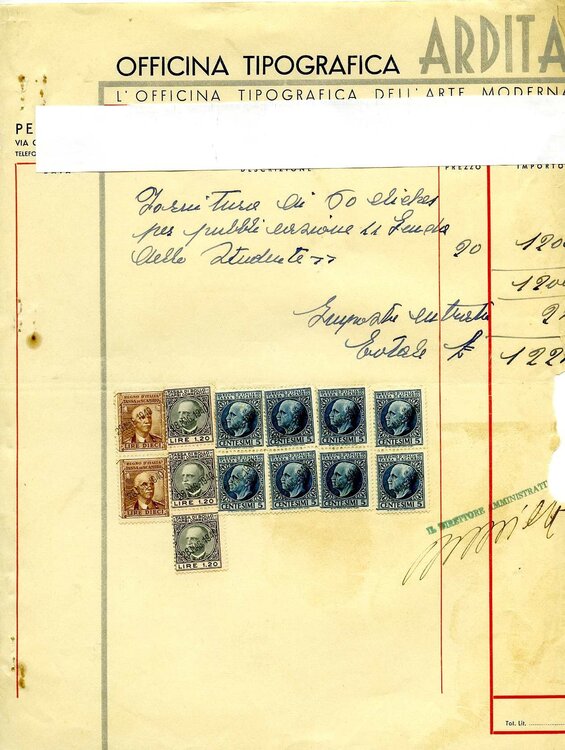 OFFICINA TIPOGRAFICA ARDITA
L'OFFICINA TIPOGRAFICA DELL'ARTE MODERNA
PE
VIA
TELEFO
DESCRIZIONE PREZZO IMPORTO
Fornitura di 60 clichés
per pubblicazione "Guida
dello Studente" 20 1200
1200
Imposta entrata 2
Totale £ 122
REGNO D'ITALIA
LIRE DIECI
LIRE 1.20
CENTESIMI 5
CENTESIMI 5
CENTESIMI 5
CENTESIMI 5
REGNO D'ITALIA
LIRE DIECI
LIRE 1.20
CENTESIMI 5
CENTESIMI 5
CENTESIMI 5
CENTESIMI 5
LIRE 1.20
IL DIRETTORE AMMINISTRATI
Tot. Lit.